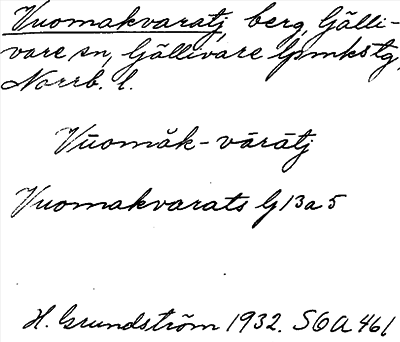 Vuomakvaratj, berg, Gälli-
vare sn, Gällivare lpmkstg,
Norrb. l.
Vūomăk-vārātj
Vuomakvarats G 13a5
H. Grundström 1932. SOA 461